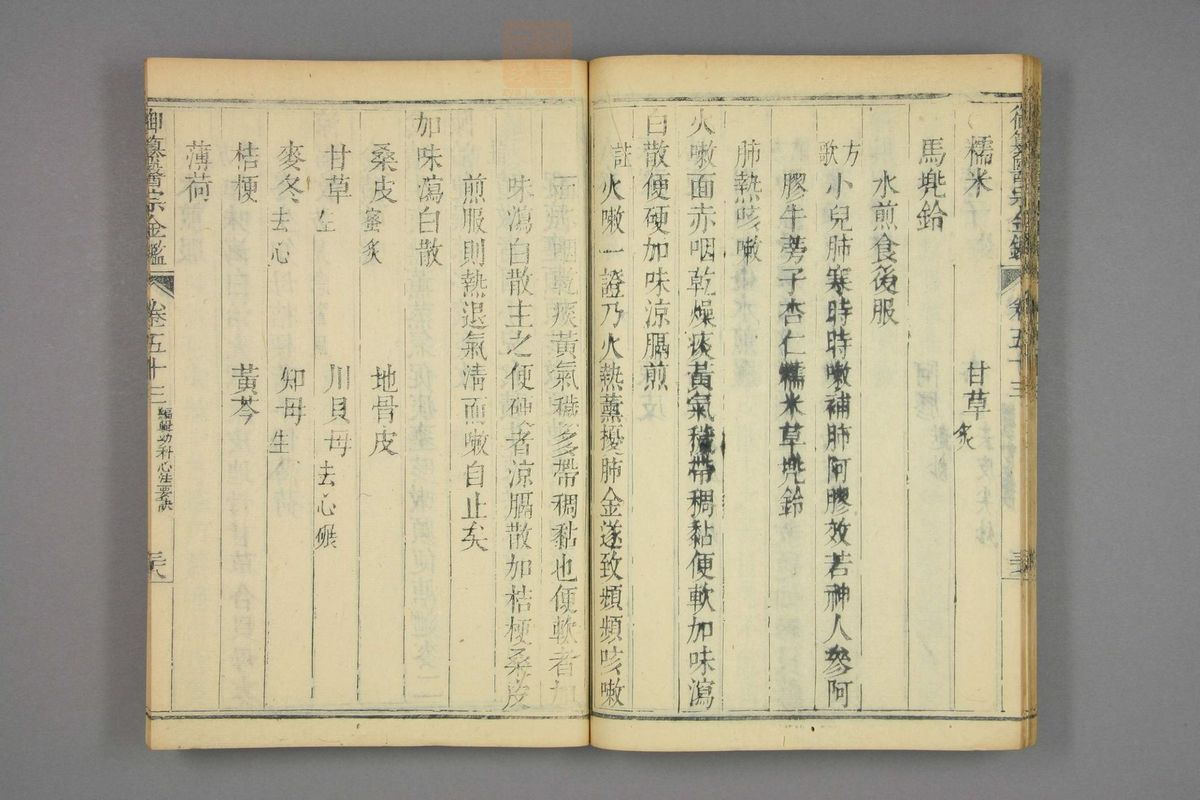 御纂醫宗金鑑 卷五十三
糯米 甘草炙
馬兜鈴
水煎食後服
方歌 小兒肺寒時時嗽補肺阿膠效若神人參阿
膠牛蒡子杏仁糯米草兜鈴
肺熱咳嗽
火嗽面赤咽乾燥痰黃氣穢帶稠黏便軟加味瀉
白散便硬加味涼膈煎
註 火嗽一證乃火熱薰擾肺金遂致頻頻咳嗽
面赤咽乾痰黃氣穢多帶稠黏也便軟者加
味瀉白散主之便硬者涼膈散加桔梗桑皮
煎服則熱退氣清而嗽自止矣
加味瀉白散
桑皮蜜炙 地骨皮
甘草生 川貝母去心碾
麥冬去心 知母生
桔梗 黃芩
薄荷
御纂醫宗金鑑 卷五十三 編輯幼科心法要訣 三八